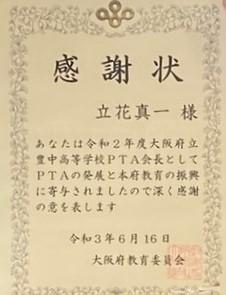 感謝状
立花真一 様
あなたは令和2年度大阪府立
豊中高等学校PTA会長として
PTAの発展と本府教育の振興
に寄与されましたので深く感謝
の意を表します
令和3年6月16日
大阪府教育委員会